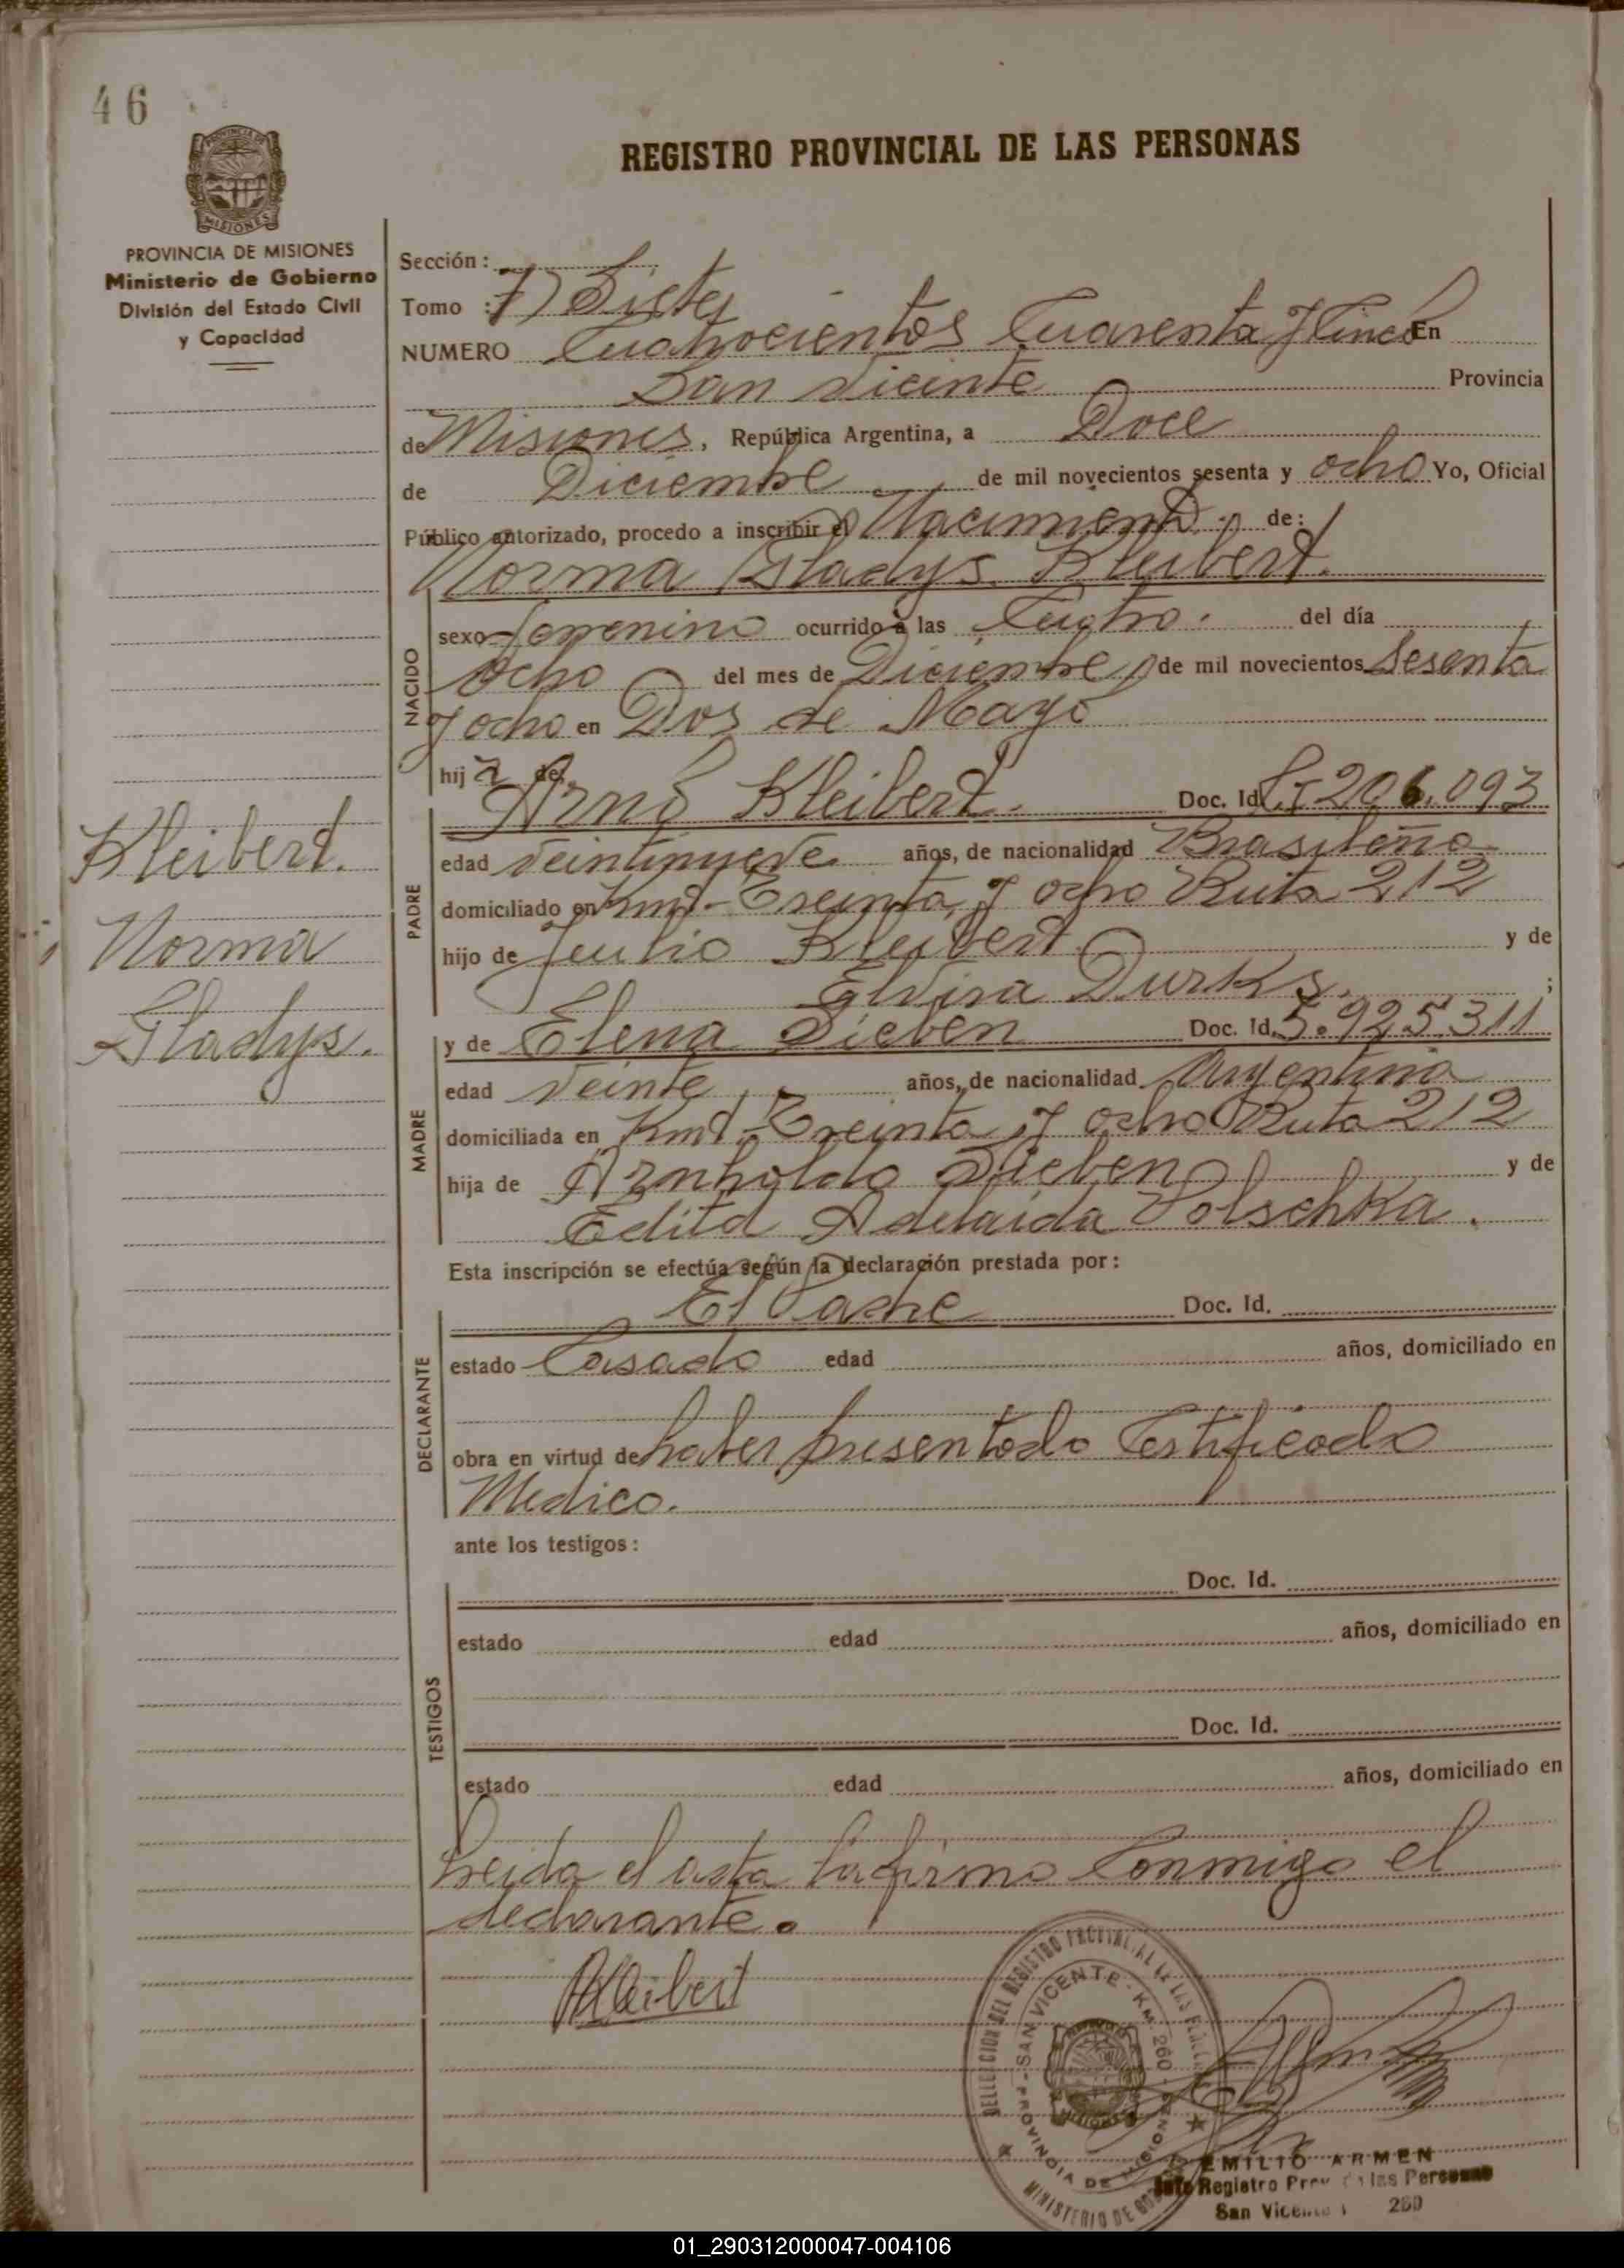 46
REGISTRO PROVINCIAL DE LAS PERSONAS
PROVINCIA DE MISIONES
Ministerio de Gobierno
División del Estado Civil
y Capacidad
Sección:
Tomo : 7) Siete
NUMERO Cuatrocientos Cuarenta y Cinco En
San Vicente Provincia
de Misiones, República Argentina, a Doce
de Diciembre de mil novecientos sesenta y ocho Yo, Oficial
Público autorizado, procedo a inscribir el Nacimiento de:
Norma Gladys Kleibert.
NACIDO
sexo femenino ocurrido a las Cuatro. del día
Ocho del mes de Diciembre de mil novecientos Sesenta
y ocho en Dos de Mayo
hija de
PADRE
Arno Kleibert. Doc. Id. 206.093
edad Veintinueve años, de nacionalidad Brasileña
domiciliado en Kmt- Treinta y ocho Ruta 212
hijo de Julio Kleibert y de
Elvira Durks. ;
Kleibert.
Norma
Gladys.
MADRE
y de Elena Sieben Doc. Id. 5.925.311
edad Veinte años, de nacionalidad Argentina
domiciliada en Kmt- Treinta y ocho Ruta 212
hija de Arnholdo Sieben y de
Edita Adelaida Polschka.
Esta inscripción se efectúa según la declaración prestada por:
DECLARANTE
El Padre Doc. Id.
estado Casado edad años, domiciliado en
obra en virtud de haber presentado Certificado
Medico.
ante los testigos:
TESTIGOS
Doc. Id.
estado edad años, domiciliado en
Doc. Id.
estado edad años, domiciliado en
Leida el acta la firma Conmigo el
declarante.
AKleibert
DELEGACION DEL REGISTRO PROVINCIAL DE LAS
SAN VICENTE - KM 260 - PROVINCIA DE MISIONES
MINISTERIO DE
EMILIO ARMEN
Jefe Registro Prov. de las Personas
San Vicente 260
01_290312000047-004106